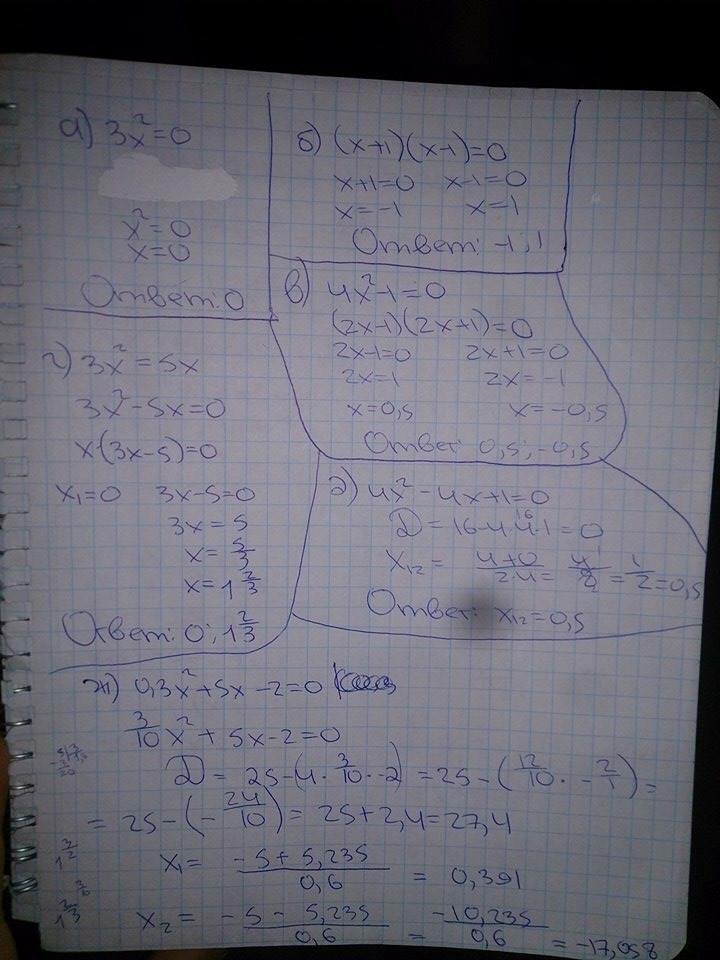 а) 3x²=0
x²=0
x=0
Ответ: 0
б) (x+1)(x-1)=0
x+1=0 x-1=0
x=-1 x=1
Ответ: -1; 1
в) 4x²-1=0
(2x-1)(2x+1)=0
2x-1=0 2x+1=0
2x=1 2x=-1
x=0,5 x=-0,5
Ответ: 0,5; -0,5
г) 3x²=5x
3x²-5x=0
x·(3x-5)=0
x₁=0 3x-5=0
3x=5
x=5/3
x=1 2/3
Ответ: 0; 1 2/3
д) 4x²-4x+1=0
D=16-4·4·1=0
16
x₁₂= 4+0/2·4 = 4/8 = 1/2 =0,5
Ответ: x₁₂=0,5
ж) 0,3x²+5x-2=0
3/10x²+5x-2=0
D=25-(4·3/10·-2)=25-(12/10·-2/1)=
=25-(-24/10)=25+2,4=27,4
x₁= -5+5,235/0,6 = 0,391
x₂= -5-5,235/0,6 = -10,235/0,6 = -17,058